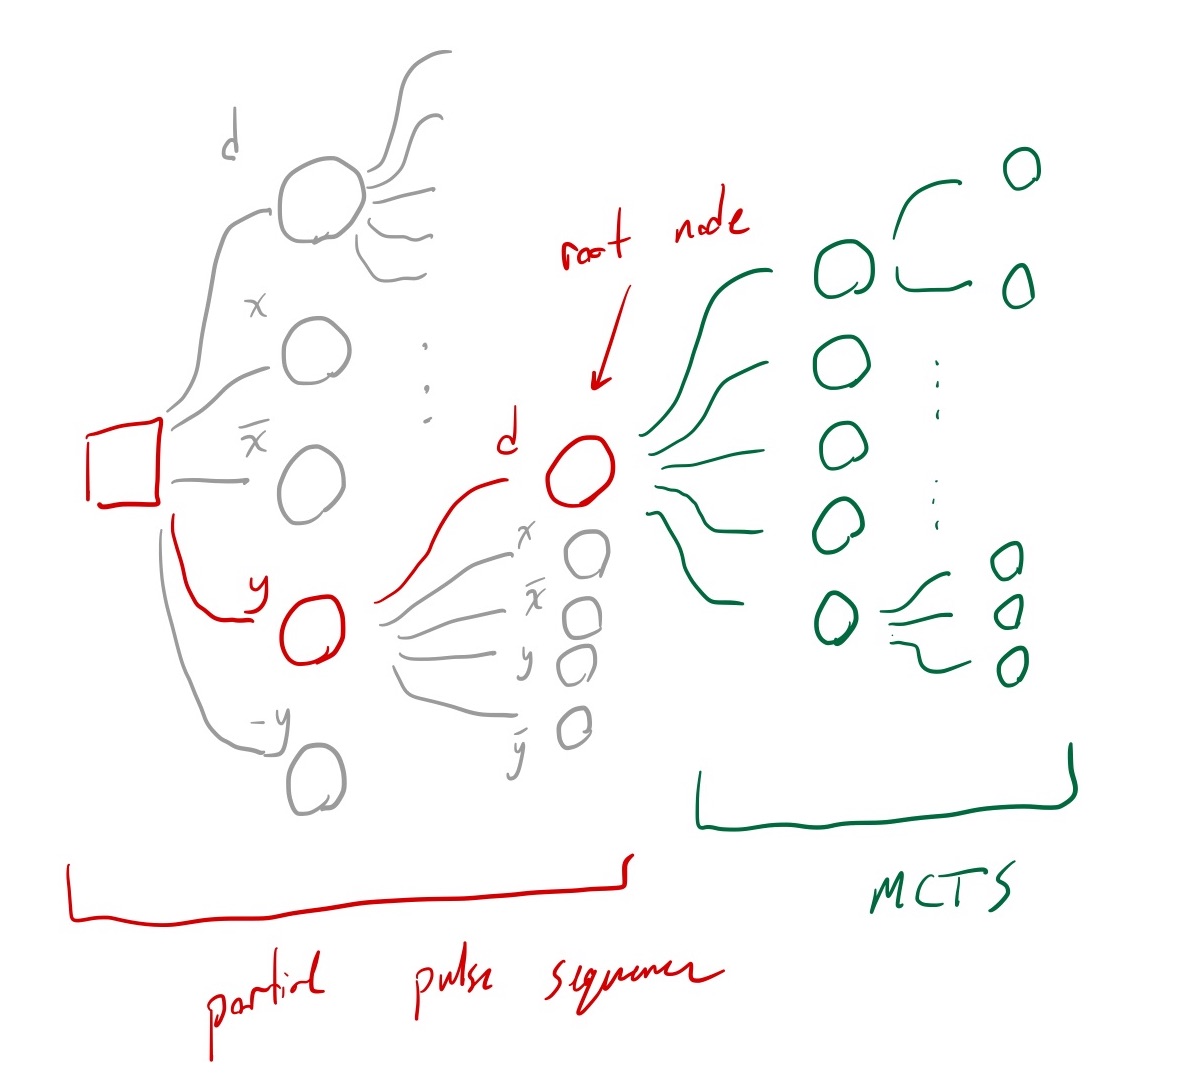 d
x
x̅
y
-y
root node
d
x
x̅
y
y̅
MCTS
partial pulse sequence